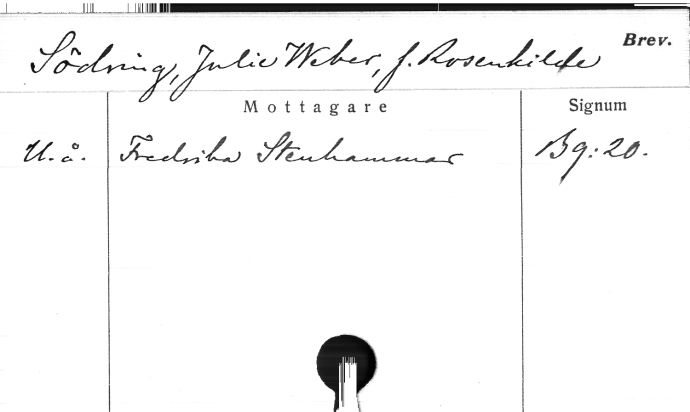 Brev.
Södring, Julie Weber, f. Rosenkilde
Mottagare Signum
U. å. Fredrika Stenhammar Bg: 20.